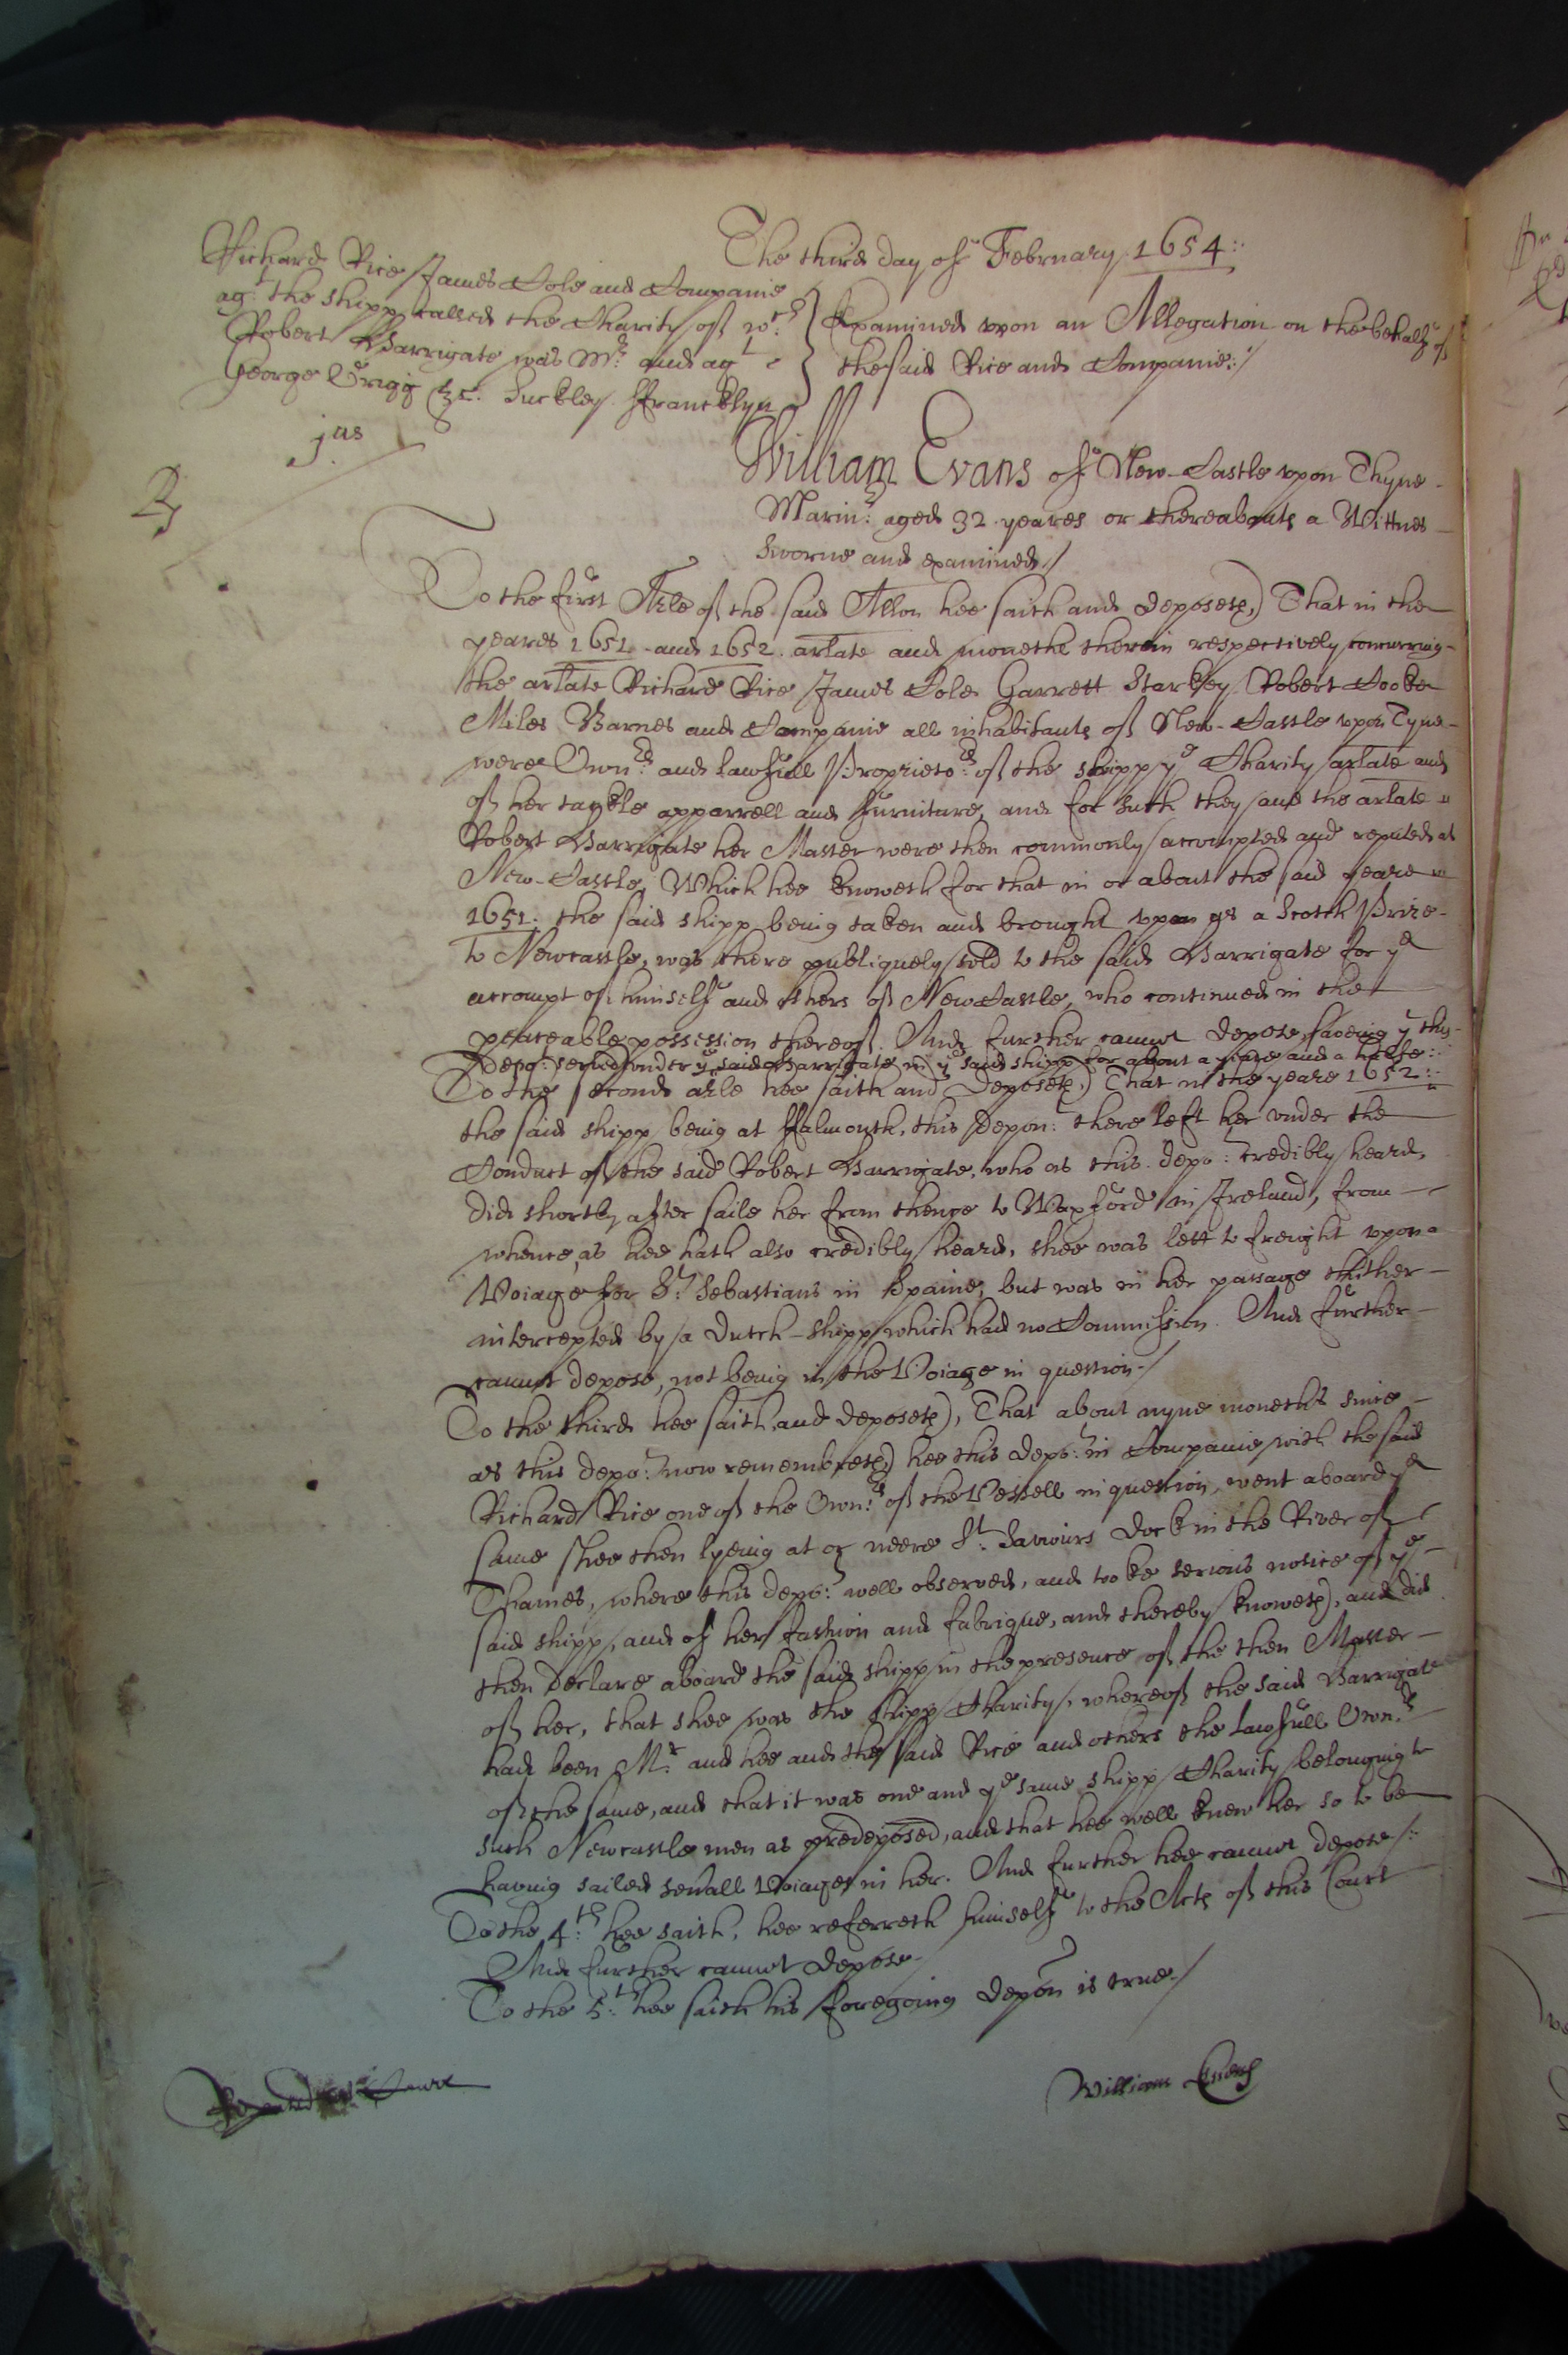 The third day of February 1654:
Richard Rice James Cole and Companie
agt the shipp called the Charity of wch
Robert Barrigate was Mr and agt
George Brigg &c. Suckley. ffrancklyn
Examined upon an Allegation on the behalfe of
the said Rice and Companie:/
jus
William Evans of New-Castle upon Thyne
Marinr: aged 32 yeares or thereabouts a Wittnes
sworne and examined/
To the first Arle of the said Allon hee saith and deposeth, That in the
yeares 1651 and 1652. arlate and moneths therein respectively concurring
the arlate Richard Rice James Cole Garrett Starkey Robert Cooke
Miles Barnes and Companie all inhabitants of New-Castle upon Tyne
were Ownrs: and lawfull Proprietors: of the shipp ye Charity arlate and
of her tackle apparrell and furniture, and for such they and the arlate
Robert Barrigate her Master were then commonly accompted and reputed at
New-Castle, Which hee knoweth for that in or about the said yeare
1651. the said shipp being taken and brought upon as a Scotch Prize
to Newcastle, was there publiquely sold to the said Barrigate for ye
accompt of himselfe and others of New Castle, who continued in the
peaceable possession thereof. And further cannot depose, saveing yt this
Depot: served under ye said Barrigate in ye said shipp for about a yeare and a halfe:
To the second arle hee saith and deposeth, That in the yeare 1652:
the said shipp being at ffalmouth, this Depont: there left her under the
Conduct of the said Robert Barrigate, who as this depot: credibly heard,
did shortly after saile her from thence to Waxford in Ireland, from
whence, as hee hath also credibly heard, shee was lett to freight upon a
Voiage for St: Sebastians in Spaine, but was in her passage thither
intercepted by a Dutch-shipp which had no Commission. And further
cannot depose, not being in the Voiage in question./
To the third hee saith and deposeth, That about nyne moneths since
as this depot: now remembreth, hee this depot: in Companie with the said
Richard Rice one of the Ownrs: of the Vessell in question, went aboard ye
same shee then lyeing at or neere St: Saviours Dock in the River of
Thames, where this depot: well observed, and tooke serious notice of ye
said shipp, and of her fashion and fabrique, and thereby knoweth, and did
then declare aboard the said shipp in the presence of the then Master
of her, that shee was the shipp Charity, whereof the said Barrigate
had been Mr: and hee and the said Rice and others the lawfull Ownrs:
of the same, and that it was one and ye same shipp Charity belonging to
such Newcastle men as predeposed, and that hee well knew her so to be
having sailed severall Voiages in her. And further hee cannot depose/:
To the 4th: hee saith, hee referreth himselfe to the Acts of this Court
And further cannot depose
To the 5th: hee saith his foregoing depon is true./
William Evens